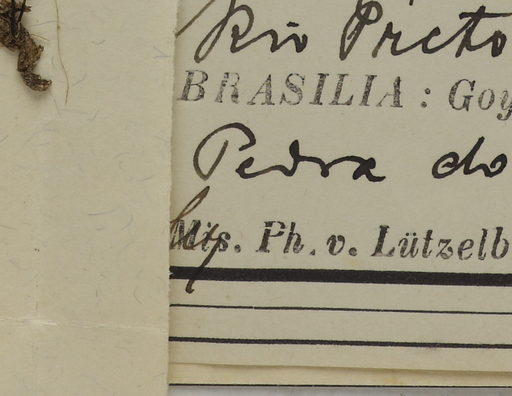 Rio Preto
BRASILIA : Goy
Pedra do
Mis. Ph. v. Lützelb